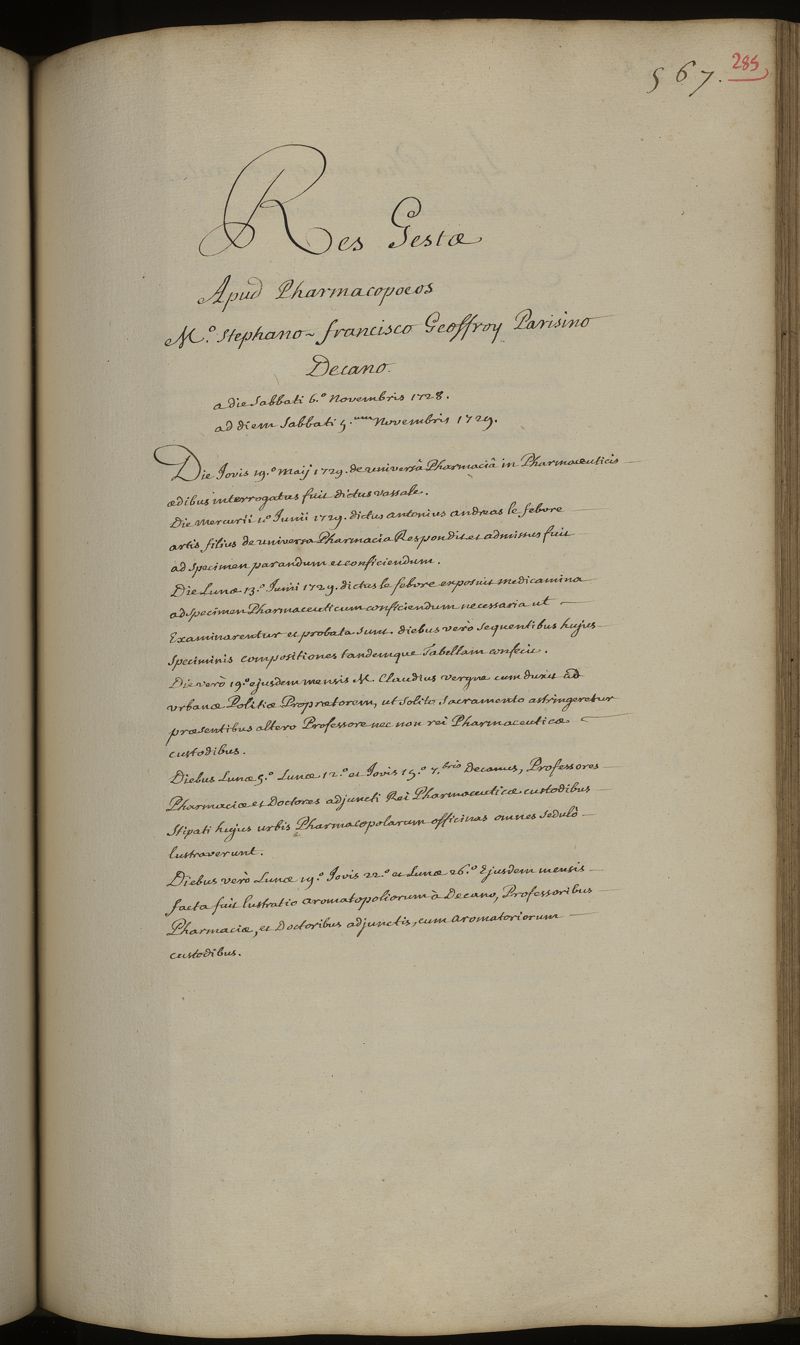 567. 285
Res Gestæ
Apud Pharmacopoeos
M.º Stephano-francisco Geoffroy Parisino
Decano.
a die Sabbati 6.º Novembris 1728.
ad diem Sabbati 5.um Novembris 1729.
Die Jovis 19.º maij 1729. de universâ Pharmaciâ in Pharmaceuticis
ædibus interrogatus fuit dictus vassale.
Die Mercurii 1.º Junii 1729. dictus antonius andreas le febore
artis filius de universa Pharmacia Respondit et admissus fuit
ad Specimen parandum et conficiendum.
Die Lunæ 13.º Junii 1729. dictus le febore exposuit medicamina
ad Specimen Pharmaceuticum conficiendum necessaria ut
Examinarentur et probata sunt. diebus verò Sequentibus hujus
Speciminis compositiones tandemque Tabellam confecit.
Die verò 19.º ejusdem mensis M. Claudius vergne eum duxit ad
urbanæ Politiæ Proprætorem, ut Solito Sacramento astringeretur
præsentibus altero Professore nec non rei Pharmaceuticæ
custodibus.
Diebus Lunæ 5.º Lunæ 12.º et Jovis 15.º 7.bris Decanus, Professores
Pharmaciæ et Doctores adjuncti Rei Pharmaceuticæ custodibus
Stipati hujus urbis Pharmacopolarum officinas omnes Sedulò
lustraverunt.
Diebus verò Lunæ 19.º Jovis 22.º et Lunæ 26.º Ejusdem mensis
facta fuit lustratio aromatopoliorum à Decano, Professoribus
Pharmaciæ, et Doctoribus adjunctis, cum aromatoriorum
custodibus.